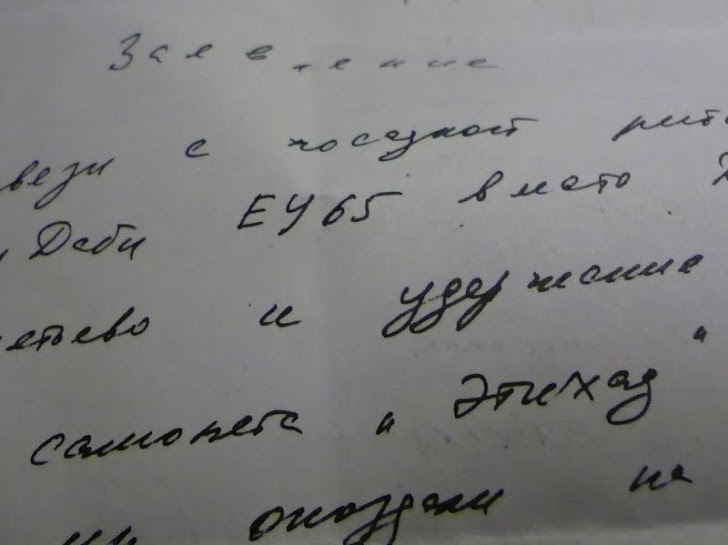 Заявление
вязи с посадкой
Даби EY65 вместо
етьево и удержание
самолета „Этихад"
опоздали на